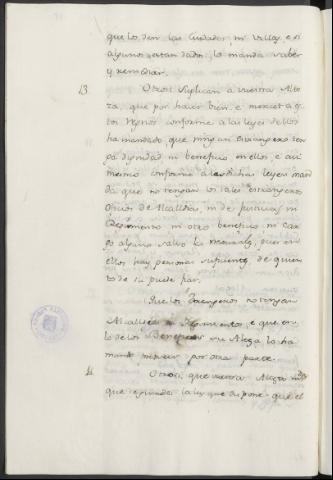 que los den las Ciudades, ni Villas, e si
algunos estan dados, lo manda veber
y remediar.
13 Otrosi Suplican a vuestra Alte
za, que por hacer bien, e merced a es
tos Reynos conforme a las leyes de ellos
ha mandado, que ningun estrangero ten
ga dignidad ni beneficio en ellos, e asi
mesmo conforme a las dichas leyes man
da que no tengan los tales estrangeros
Oficios de Alcaldias, ni de Justicias, ni
Regimiento ni otro beneficio ni car
go alguno pues en
ellos hay personas suficientes de quien
to de su puede fiar.
Que los Estrangeros no tengan
Alcaldias ni Regimiento, e que en
lo de los Beneficios su Alteza lo ha
mandado proveer por otra parte.
14 Otrosi, que vuestra Alteza
que la ley que dispone que el